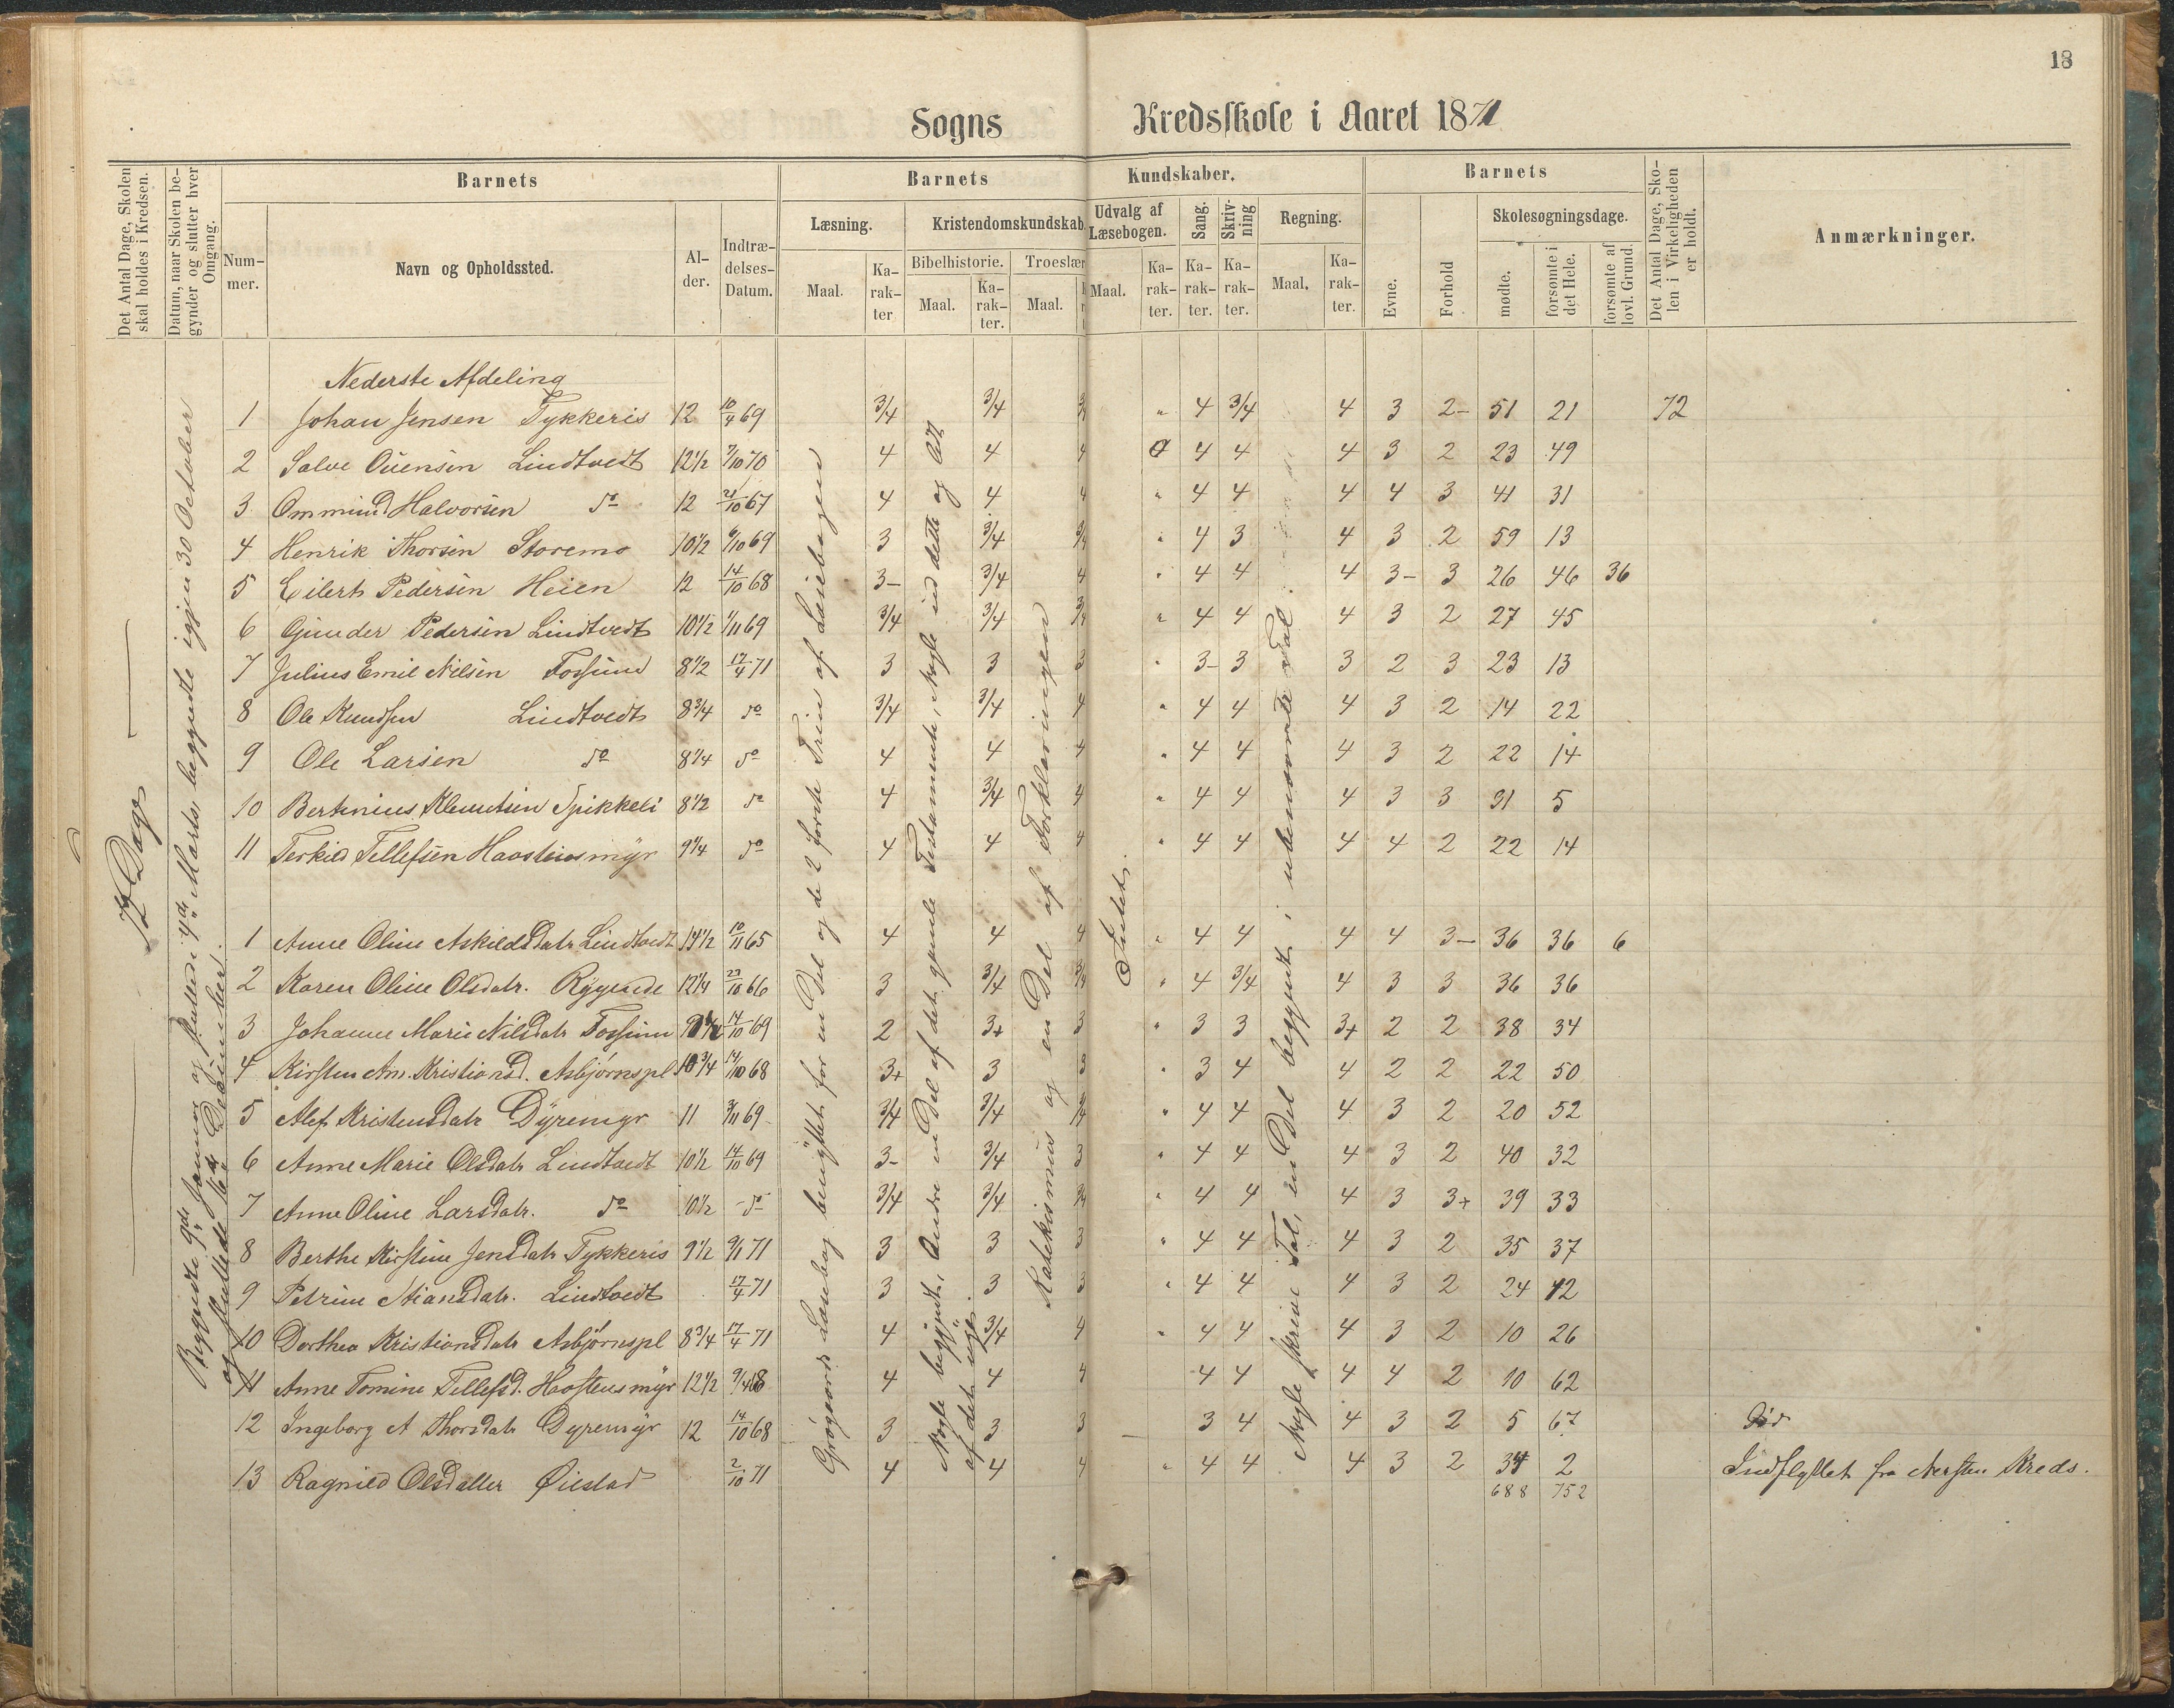 18
Sogns Kredsskole i Aaret 1871
Det Antal Dage, Skolen skal holdes i Kredsen.
Datum, naar Skolen begynder og slutter hver Omgang.
Barnets
Nummer.
Navn og Opholdssted.
Alder.
Indtrædelses-Datum.
Barnets Kundskaber.
Læsning.
Maal.
Karakter
Kristendomskundskab
Bibelhistorie.
Maal.
Karakter.
Troeslær
Maal.
Udvalg af Læsebogen.
Maal.
Karakter.
Sang.
Karakter.
Skrivning
Karakter.
Regning.
Maal.
Karakter.
Barnets
Evne.
Forhold
Skolesøgningsdage.
mødte.
forsømte i det Hele.
forsømte af lovl. Grund.
Det Antal Dage, Skolen i Virkeligheden er holdt.
Anmærkninger.
72 Dage
Begyndte 9de Januar og sluttede 4de Marts, begyndte igjen 30 October
og sluttede 16de December.
Nederste Afdeling
1 Johan Jensen Tykkeris 12 10/4 69 3/4 3/4 3/4 " 4 3/4 4 3 2- 51 21 72
2 Salve Ouensen Lindtvedt 12 1/2 7/10 70 4 4 4 4 4 4 3 2 23 49
3 Ommund Halvorsen do 12 21/10 67 4 4 4 " 4 4 4 4 3 41 31
4 Henrik Thorsen Storemo 10 1/2 6/10 69 3 3/4 3/4 " 4 3 4 3 2 59 13
5 Eilert Pedersen Heien 12 14/10 68 3- 3/4 4 " 4 4 4 3- 3 26 46 36
6 Gunder Pedersen Lindtvedt 10 1/2 1/11 69 3/4 3/4 3/4 " 4 4 4 3 2 27 45
7 Julius Emil Nilsen Fossum 8 1/2 17/4 71 3 3 3 " 3- 3 3 2 3 23 13
8 Ole Knudsen Lindtvedt 8 3/4 do 3/4 3/4 4 " 4 4 4 3 2 14 22
9 Ole Larsen do 8 1/4 do 4 4 4 " 4 4 4 3 2 22 14
10 Bertinius Knudsen Spikkeli 8 1/2 do 4 3/4 4 " 4 4 4 3 3 31 5
11 Terkild Tellefsen Haastensmyr 9 1/4 do 4 4 4 " 4 4 4 4 2 22 14
1 Anne Oline Askildsdatr Lindtvedt 14 1/2 10/11 65 4 4 4 " 4 4 4 4 3- 36 36 6
2 Karen Oline Olsdatr. Rygende 12 1/4 27/10 66 3 3/4 3/4 " 4 3/4 4 3 3 36 36
3 Johanne Marie Nilsdatr Fossum 14/10 69 2 3+ 3 " 3 3 3+ 2 2 38 34
4 Kirsten An. Kristiansd. Asbjørnspl 10 3/4 14/10 68 3+ 3 3 " 3 4 4 2 2 22 50
5 Alef Kristensdatr Dyremyr 11 3/11 69 3/4 3/4 3/4 " 4 4 4 3 2 20 52
6 Anne Marie Olsdatr Lindtvedt 10 1/2 14/10 69 3- 3/4 3 " 4 4 4 3 2 40 32
7 Anne Oline Larsdatr. do 10 1/2 do 3/4 3/4 3/4 " 4 4 4 3 3+ 39 33
8 Berthe Kirstine Jensdatr Tykkeris 9 1/2 9/1 71 3 3 3 " 4 4 4 3 2 35 37
9 Petrine Stiansdatr. Lindtvedt 17/4 71 3 3 3 " 4 4 4 3 2 24 12
10 Dorthea Kristiansdatr Asbjørnspl 8 3/4 17/4 71 4 3/4 4 " 4 4 4 3 2 10 26
11 Anne Tomine Tellefsd. Haastensmyr 12 1/2 9/4 68 4 4 4 4 4 4 4 2 10 62
12 Ingeborg A Thorsdatr Dyremyr 12 14/10 68 3 3 3 3 4 4 3 2 5 67 Død
13 Ragnild Olsdatter Øilestad 2/10 71 4 4 4 " 4 4 4 3 2 34 2 Indflyttet fra Nersten Kreds.
688 752
Grøgaards Læsebog benyttet for en Del og de 2 første Trin af Læsebogen
Nogle begyndt, Andre en Del af det gamle Testamente, Nogle ud dette og Alt
af det nye.
Katekismus og en Del af Forklaringen
Intet.
Nogle skrive Tal, en Del begyndt i ubenævnte Tal